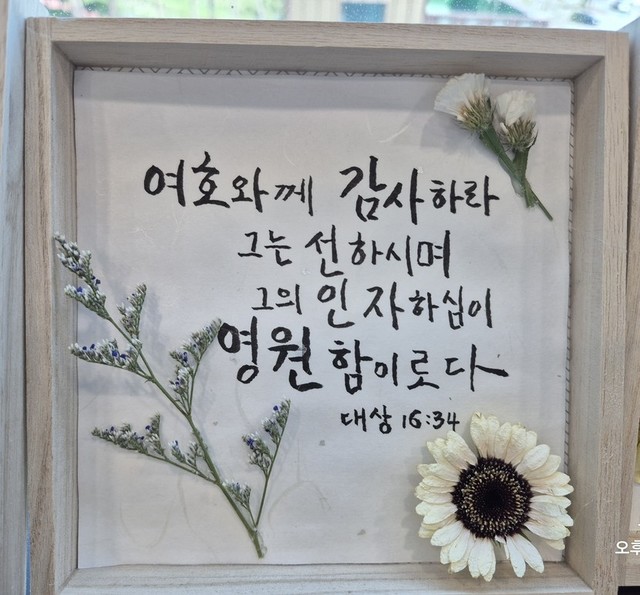 여호와께 감사하라
그는 선하시며
그의 인자하심이
영원함이로다
대상 16:34
오후